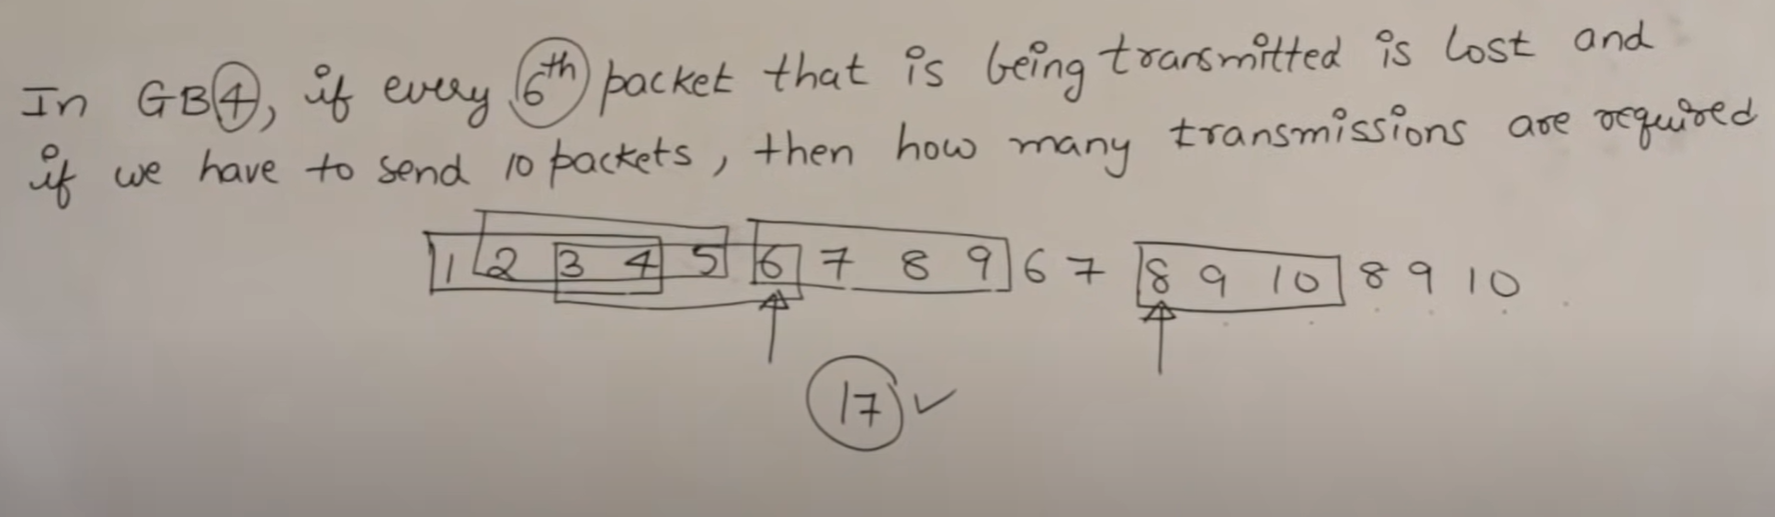 In GB4, if every 6th packet that is being transmitted is lost and
if we have to send 10 packets, then how many transmissions are required
1 2 3 4 5 6 7 8 9 6 7 8 9 10 8 9 10
17 ✓